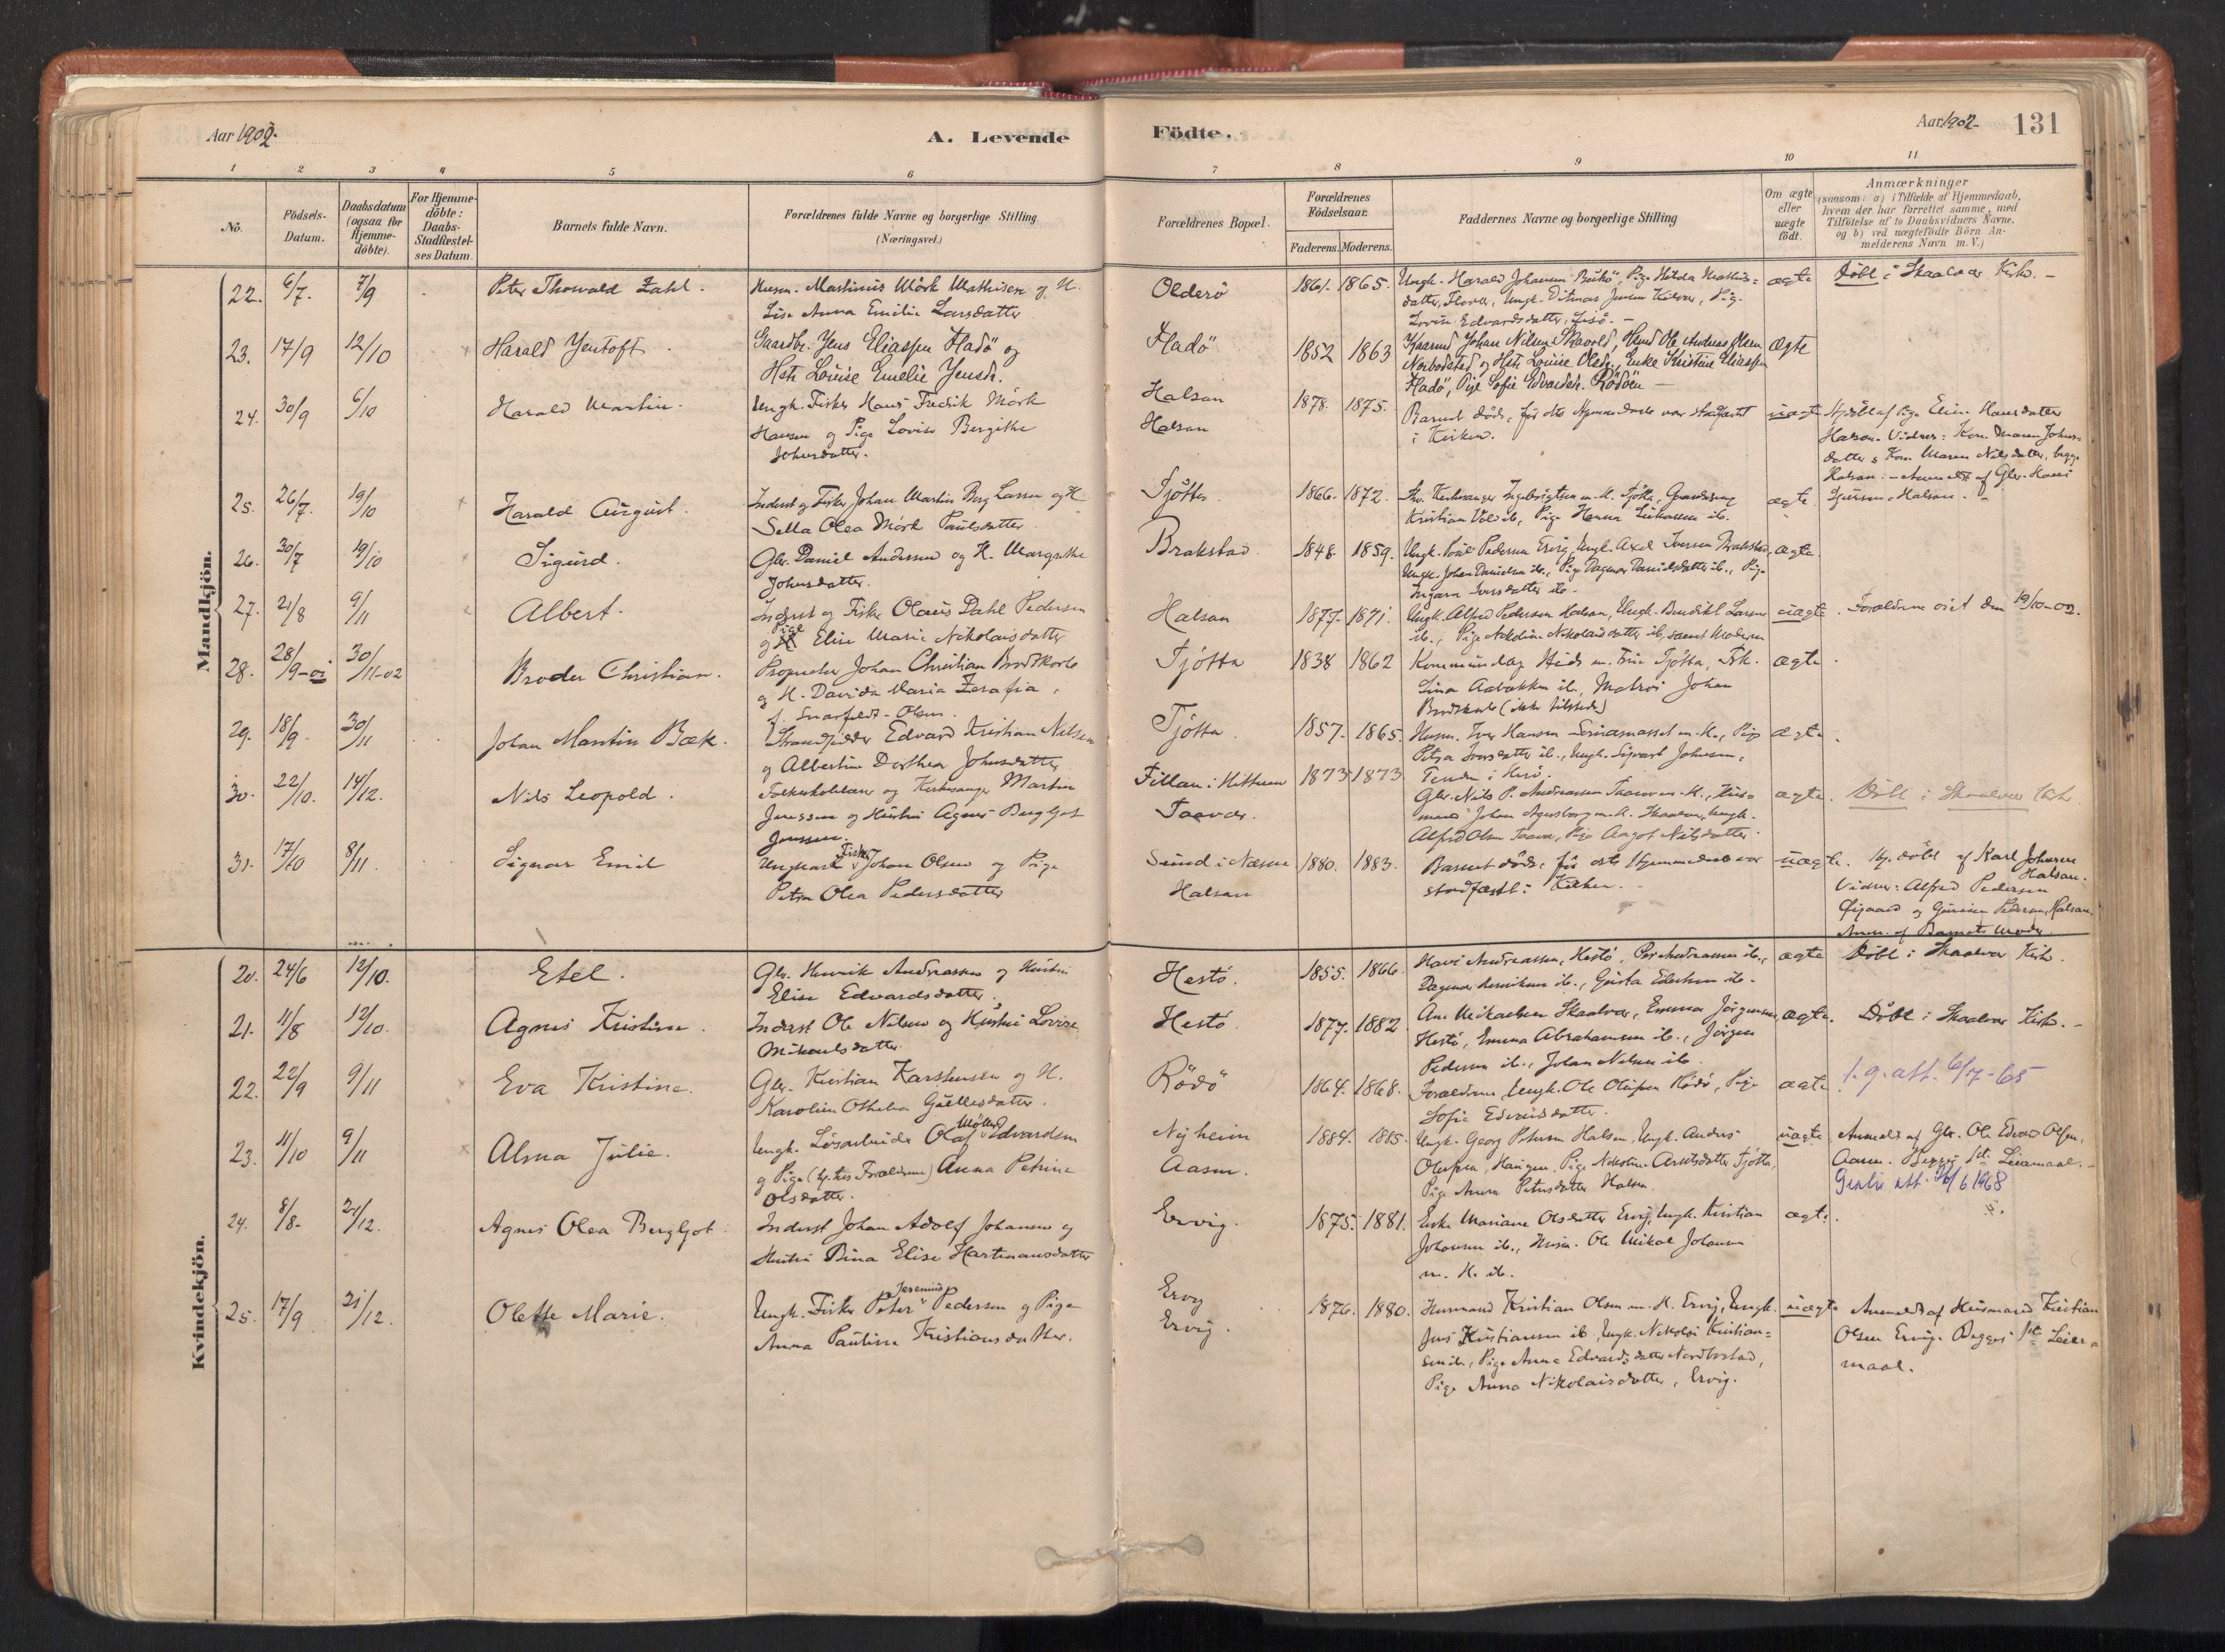 Aar 1902.
A. Levende
Födte.
Aar 1902
131
1 2 3 4 5 6 7 8 9 10 11
No.
Födsels-Datum.
Daabsdatum (ogsaa for Hjemme-döbte).
For Hjemme-döbte: Daabs-Stadfæstel-ses Datum.
Barnets fulde Navn.
Forældrenes fulde Navne og borgerlige Stilling
(Næringsvei.)
Forældrenes Bopæl.
Forældrenes Födselsaar.
Faderens. Moderens.
Faddernes Navne og borgerlige Stilling
Om ægte eller uægte födt.
Anmærkninger
(saasom: a) i Tilfælde af Hjemmedaab,
hvem der har forrettet samme, med
Tilföielse af to Daabsvidners Navne.
og b) ved uægtefödte Börn An-
melderens Navn m. V.)
Mandkjön.
22. 6/7. 7/9 Peter Thorvald Zahl.
Martinus Mörk Mathisen og H.
Lise Anna Emilie Larsdatter
Olderö 1861. 1865.
Ungk. Harald Johansen Bukö, Pige Hilda Mathis=
datter, Flovær, Ungk. Ditmar Jensen, Pige
Lovise Edvardsdatter
ægte Döbt i Skaalvær Kirke. -
23. 17/9 12/10 Harald Jentoft
Gaardbr. Jens Eliassen Fladö og
Hstr. Louise Emelie Jensdr.
Fladö 1852 1863
Johan Nilsen, Ole Andreas Olsen
Norbodsted og Hstr. Louise Olsdr., Enke Kristine Eliassen
Fladö, Pige Sofie Edvardsdr. Rödöen -
ægte
24. 30/9 6/10 Harald Martin.
Ungk. Fisker Hans Fredrik Mörk
Hansen og Pige Lovise Bergithe
Johnsdatter.
Halsan
Halsan
1878. 1875.
Barnet döde, för dets Hjemmedaab var stadfæstet
i Kirken.
uægte
Hjdöbt af Pige Elin Hansdatter
Halsan. Vidner: Kone Maren Johns=
datter & Kone Maren Nilsdatter, begge
Halsan. - Anmeldt af Gbr. Hans
Halsan. -
25. 26/7. 19/10 Harald August.
Inderst og Fisker Johan Martin Berg Larsen og H.
Sella Olea Mörk Paulsdatter
Tjötta 1866. 1872.
Kirkesanger Ingebrigtsen m. H. Tjötta,
Kristian Vold ib., Pige Hanna ib.
ægte
26. 30/7 19/10 Sigurd.
Gbr. Daniel Andersen og H. Margrethe
Johnsdatter.
Brakstad. 1848. 1859.
Ungk. Poul Pedersen Ervig, Ungk. Axel Iversen Brakstad,
Ungk. Johan Danielsen ib., Pige Dagmar Danielsdatter ib., Pige
Iversdatter ib.
ægte.
27. 21/8 9/11 Albert.
Inderst og Fisker Olaus Dahl Pedersen
og Pige Elin Marie Nikolaisdatter
Halsan 1877. 1871.
Ungk. Alfred Pedersen Halsan, Ungk. Benedikt Larsen
ib., Pige Nikoline Nikolaisdatter ib., samt Moderen
uægte. Forældrene viet den 19/10-02.
28. 28/9-01 30/11-02 Broder Christian.
Proprietær Johan Christian Brodtkorb
og H. Davida Maria Zerafia,
f. - Olsen.
Tjötta 1838 1862
m. Frue Tjötta, Frk.
Lina ib., Matros Johan
Brodtkorb (ikke tilstede)
ægte.
29. 18/9. 30/11 Johan Mantin Bæk.
Strandsidder Edvard Kristian Nilsen
og Albertine Dorthea Johnsdatter
Tjötta. 1857. 1865.
Husm. Iver Hansen m. H., Pige
Petra Iversdatter ib., Ungk. Sigvart Johansen,
i Herö.
ægte.
30. 22/10. 14/12. Nils Leopold.
Folkeskolelærer og Kirkesanger Martin
Jenssen og Hustru Agnes Bergljot
Jenssen.
Fillan i Hitteren
Taavær.
1873 1873
Gbr. Nils P. Andreassen Taavær m. H., Hus=
mand Johan m. H. Skaalvær, Ungk.
Alfred Olsen Taavær, Pige Aagot Nilsdatter
ægte. Döbt i Skaalvær Kirke.
31. 17/10 8/11. Signar Emil
Ungkarl Fisker Johan Olsen og Pige
Petra Olea Pedersdatter
Sund i Næsne
Halsan
1880. 1883.
Barnet döde, för dets Hjemmedaab var
stadfæstet i Kirken. -
uægte. Hj.döbt af Karl Johnsen
Halsan.
Vidner: Alfred Pedersen
og Pedersen, Halsan.
Anm. af Barnets Moder.
Kvindekjön.
20. 24/6 12/10. Etel.
Gbr. Henrik Andreassen og Hustru
Elise Edvardsdatter.
Hestö. 1855. 1866.
Andreassen, Hestö, Per Andreassen ib.,
Dagmar Henriksen ib., Gusta ib.
ægte Döbt i Skaalvær Kirke.
21. 11/8 12/10. Agnes Kristine.
Inderst Ole Nilsen og Hustru Lovise
Mikaelsdatter.
Hestö. 1877. 1882
Mikaelsen Skaalvær, Emma Jörgensen
Hestö, Emma Abrahamsen ib., Jörgen
Pedersen ib., Johan Nilsen ib.
ægte. Döbt i Skaalvær Kirke. -
22. 22/9 9/11 Eva Kristine.
Gbr. Kristian Karstensen og H.
Karoline Othelia
Rödö 1864. 1868.
Forældrene, Ungk. Ole Olufsen Rödö, Pige
Sofie Edvardsdatter.
ægte f.g. att. 6/7-65
23. 11/10 9/11 Alma Julie.
Ungk. Lösarbeider Olaf Möller Edvardsen
og Pige (hj. hos Forældrene) Anna Petrine
Olsdatter.
Nyheim
Aasen.
1884. 1885.
Ungk. Georg Petersen Halsan, Ungk. Anders
Olufsen, Haugen, Pige Tjötta,
Pige Anna Petersdatter Halsan.
uægte Anmeldt af Gbr. Ole Edvard Olsen,
Aasen. Begges 1ste Leiermaal. -
24. 8/8- 21/12. Agnes Olea Bergljot
Inderst Johan Adolf Johansen og
Hustru Bina Elise Hartmansdatter
Ervig. 1875. 1881.
Enke Mariane Olsdatter Ervig, Ungk. Kristian
Johansen ib., Husm. Ole Mikal Johansen
m. H. ib.
ægte.
25. 17/9 21/12. Olette Marie.
Ungk. Fisker Peter Jeremias Pedersen og Pige
Anna Pauline Kristiansdatter.
Ervig
Ervig.
1876. 1880.
Husmand Kristian Olsen m. H. Ervig, Ungk.
Jens Kristiansen ib., Ungk. Nikolai Kristian=
sen ib., Pige Anna Edvardsdatter,
Pige Anna Nikolaisdatter, Ervig.
uægte Anmeldt af Husmand Kristian
Olsen Ervig. Begges 1ste Leier=
maal.